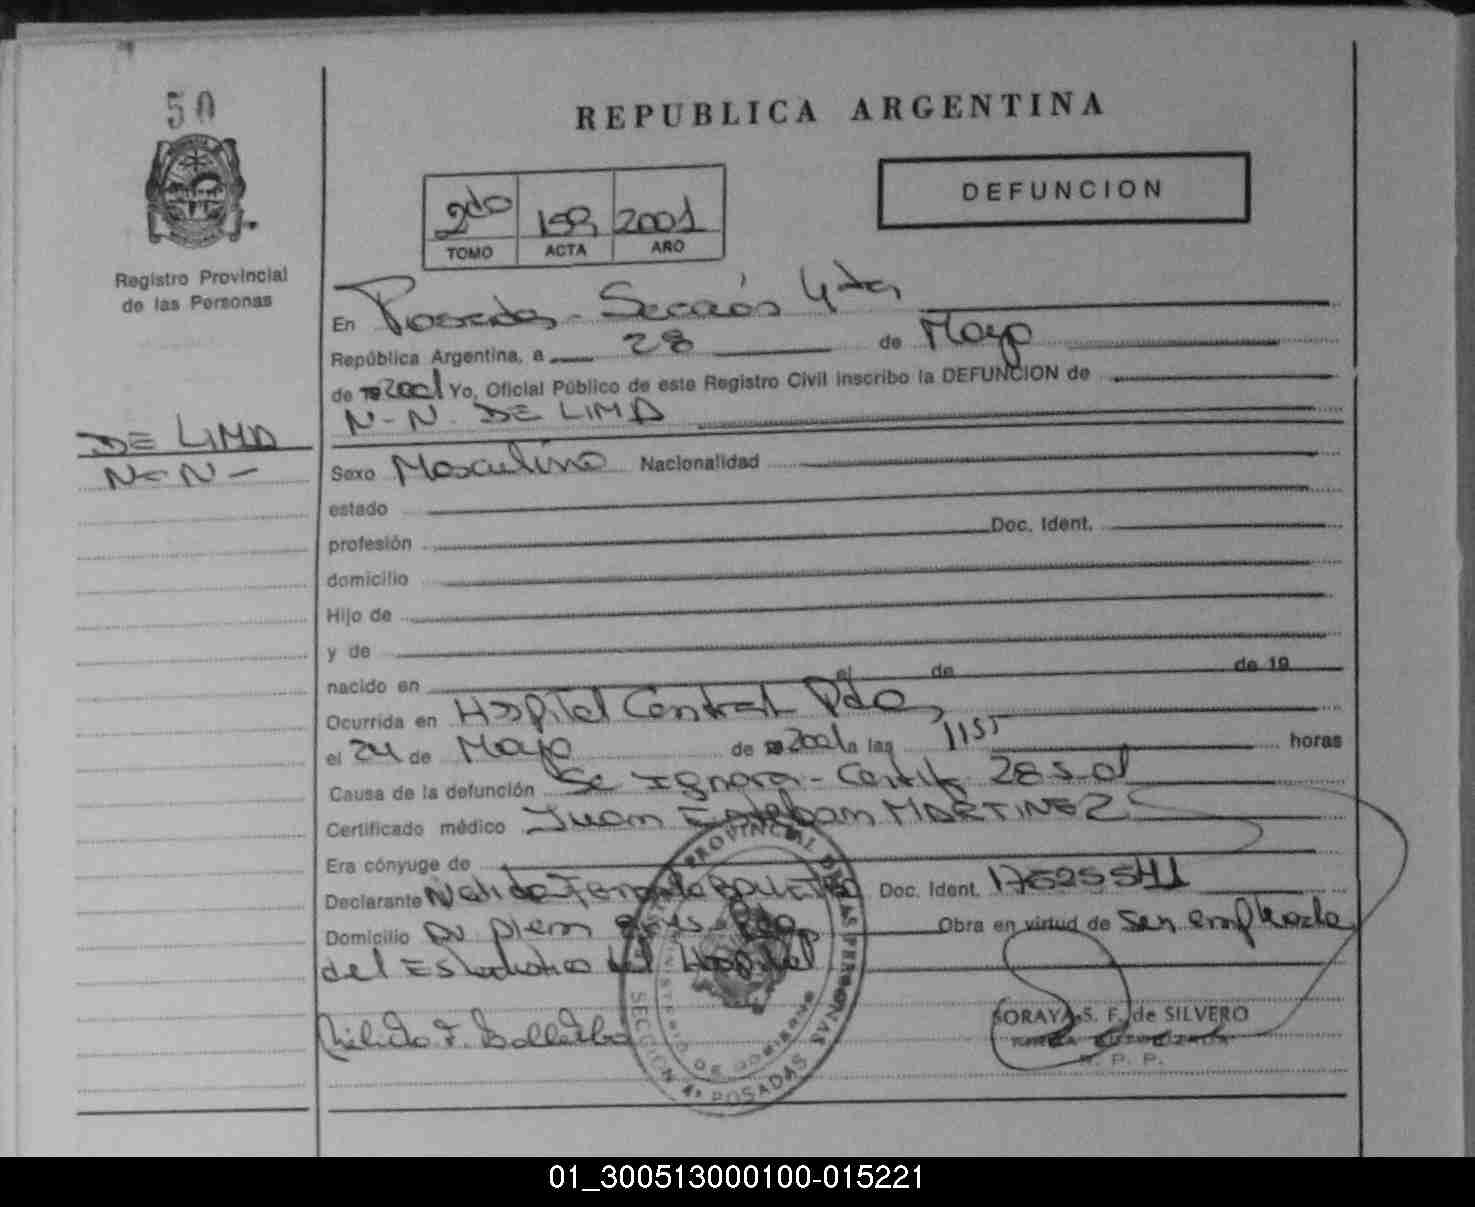 50
REPUBLICA ARGENTINA
DEFUNCION
2do 2001
TOMO ACTA AÑO
Registro Provincial
de las Personas
En Posadas - Sección 4ta
República Argentina, a 28 de Mayo
de 2001 Yo, Oficial Público de este Registro Civil inscribo la DEFUNCION de
N-N. DE LIMA
DE LIMA
N-N-
Sexo Masculino Nacionalidad
estado
profesión Doc. Ident.
domicilio
Hijo de
y de
nacido en el de de 19
Ocurrida en Hospital Central Pdas
el 24 de Mayo de 2001 a las 1155 horas
Causa de la defunción Se Ignora - Certif
Certificado médico Juan Esteban MARTINEZ
Era cónyuge de
Declarante Doc. Ident. 17625541
Domicilio Obra en virtud de ser empleada
del Hospital
PROVINCIAL DE LAS PERSONAS
MINISTERIO DE GOBIERNO
SECCION 4ª POSADAS
SORAYA S. F. de SILVERO
R. P. P.
01_300513000100-015221